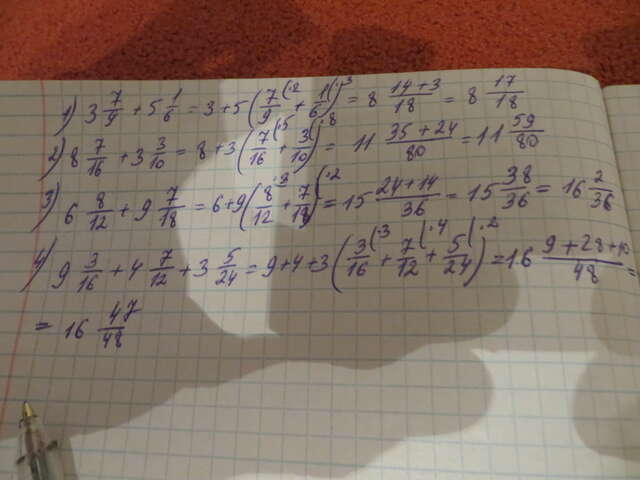 1) 3 7/9 + 5 1/6 = 3+5 (7/9 (·2 + 1/6 (·3) = 8 14+3/18 = 8 17/18
2) 8 7/16 + 3 3/10 = 8+3 (7/16 (·5 + 3/10 (·8) = 11 35+24/80 = 11 59/80
3) 6 8/12 + 9 7/18 = 6+9 (8/12 (·3 + 7/18 (·2) = 15 24+14/36 = 15 38/36 = 16 2/36
4) 9 3/16 + 4 7/12 + 3 5/24 = 9+4+3 (3/16 (·3 + 7/12 (·4 + 5/24 (·2) = 16 9+28+10/48 =
= 16 47/48